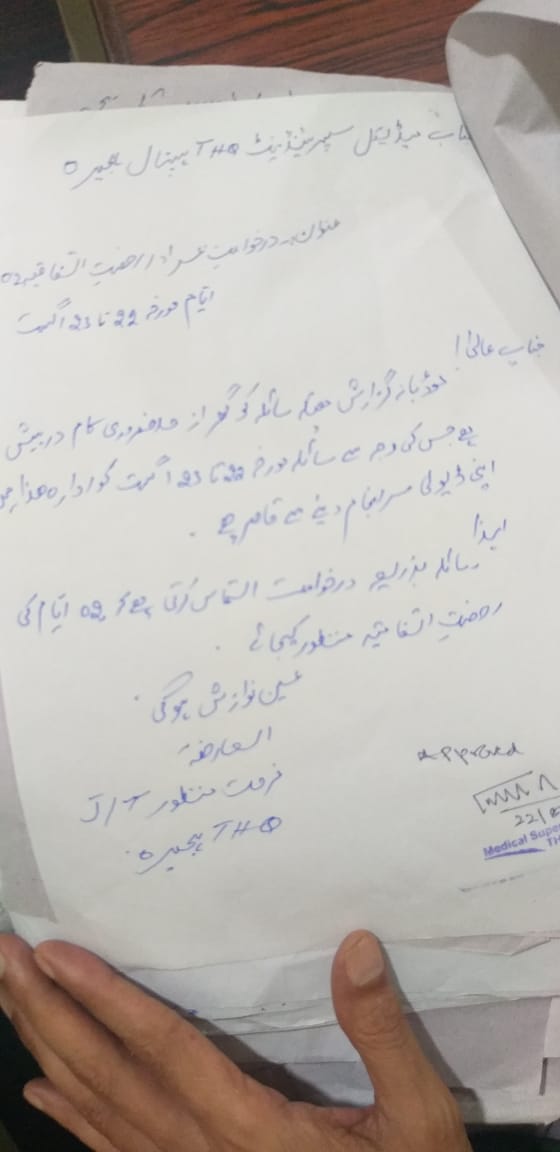 جناب میڈیکل سپریٹنڈنٹ THQ ہسپتال ہجیرہ
عنوان:۔ درخواست بمراد رخصت اتفاقیہ 02
ایام مورخہ 22 تا 23 اگست
جناب عالی!
مودبانہ گزارش ھیکہ سائلہ کو گھر از حد ضروری کام درپیش
ہے جس کی وجہ سے سائلہ مورخہ 22 تا 23 اگست کو ادارہ ھذا میں
اپنی ڈیوٹی سرانجام دینے سے قاصر ہے ۔
لہذا
سائلہ بذریعہ درخواست التماس کرتی ہے کہ 02 ایام کی
رخصت اتفاقیہ منظور کیجائے ۔
عین نوازش ہوگی ۔
العارضہ
منظور J/T
THQ ہجیرہ ۔
Approved
22/
Medical Supe
TH